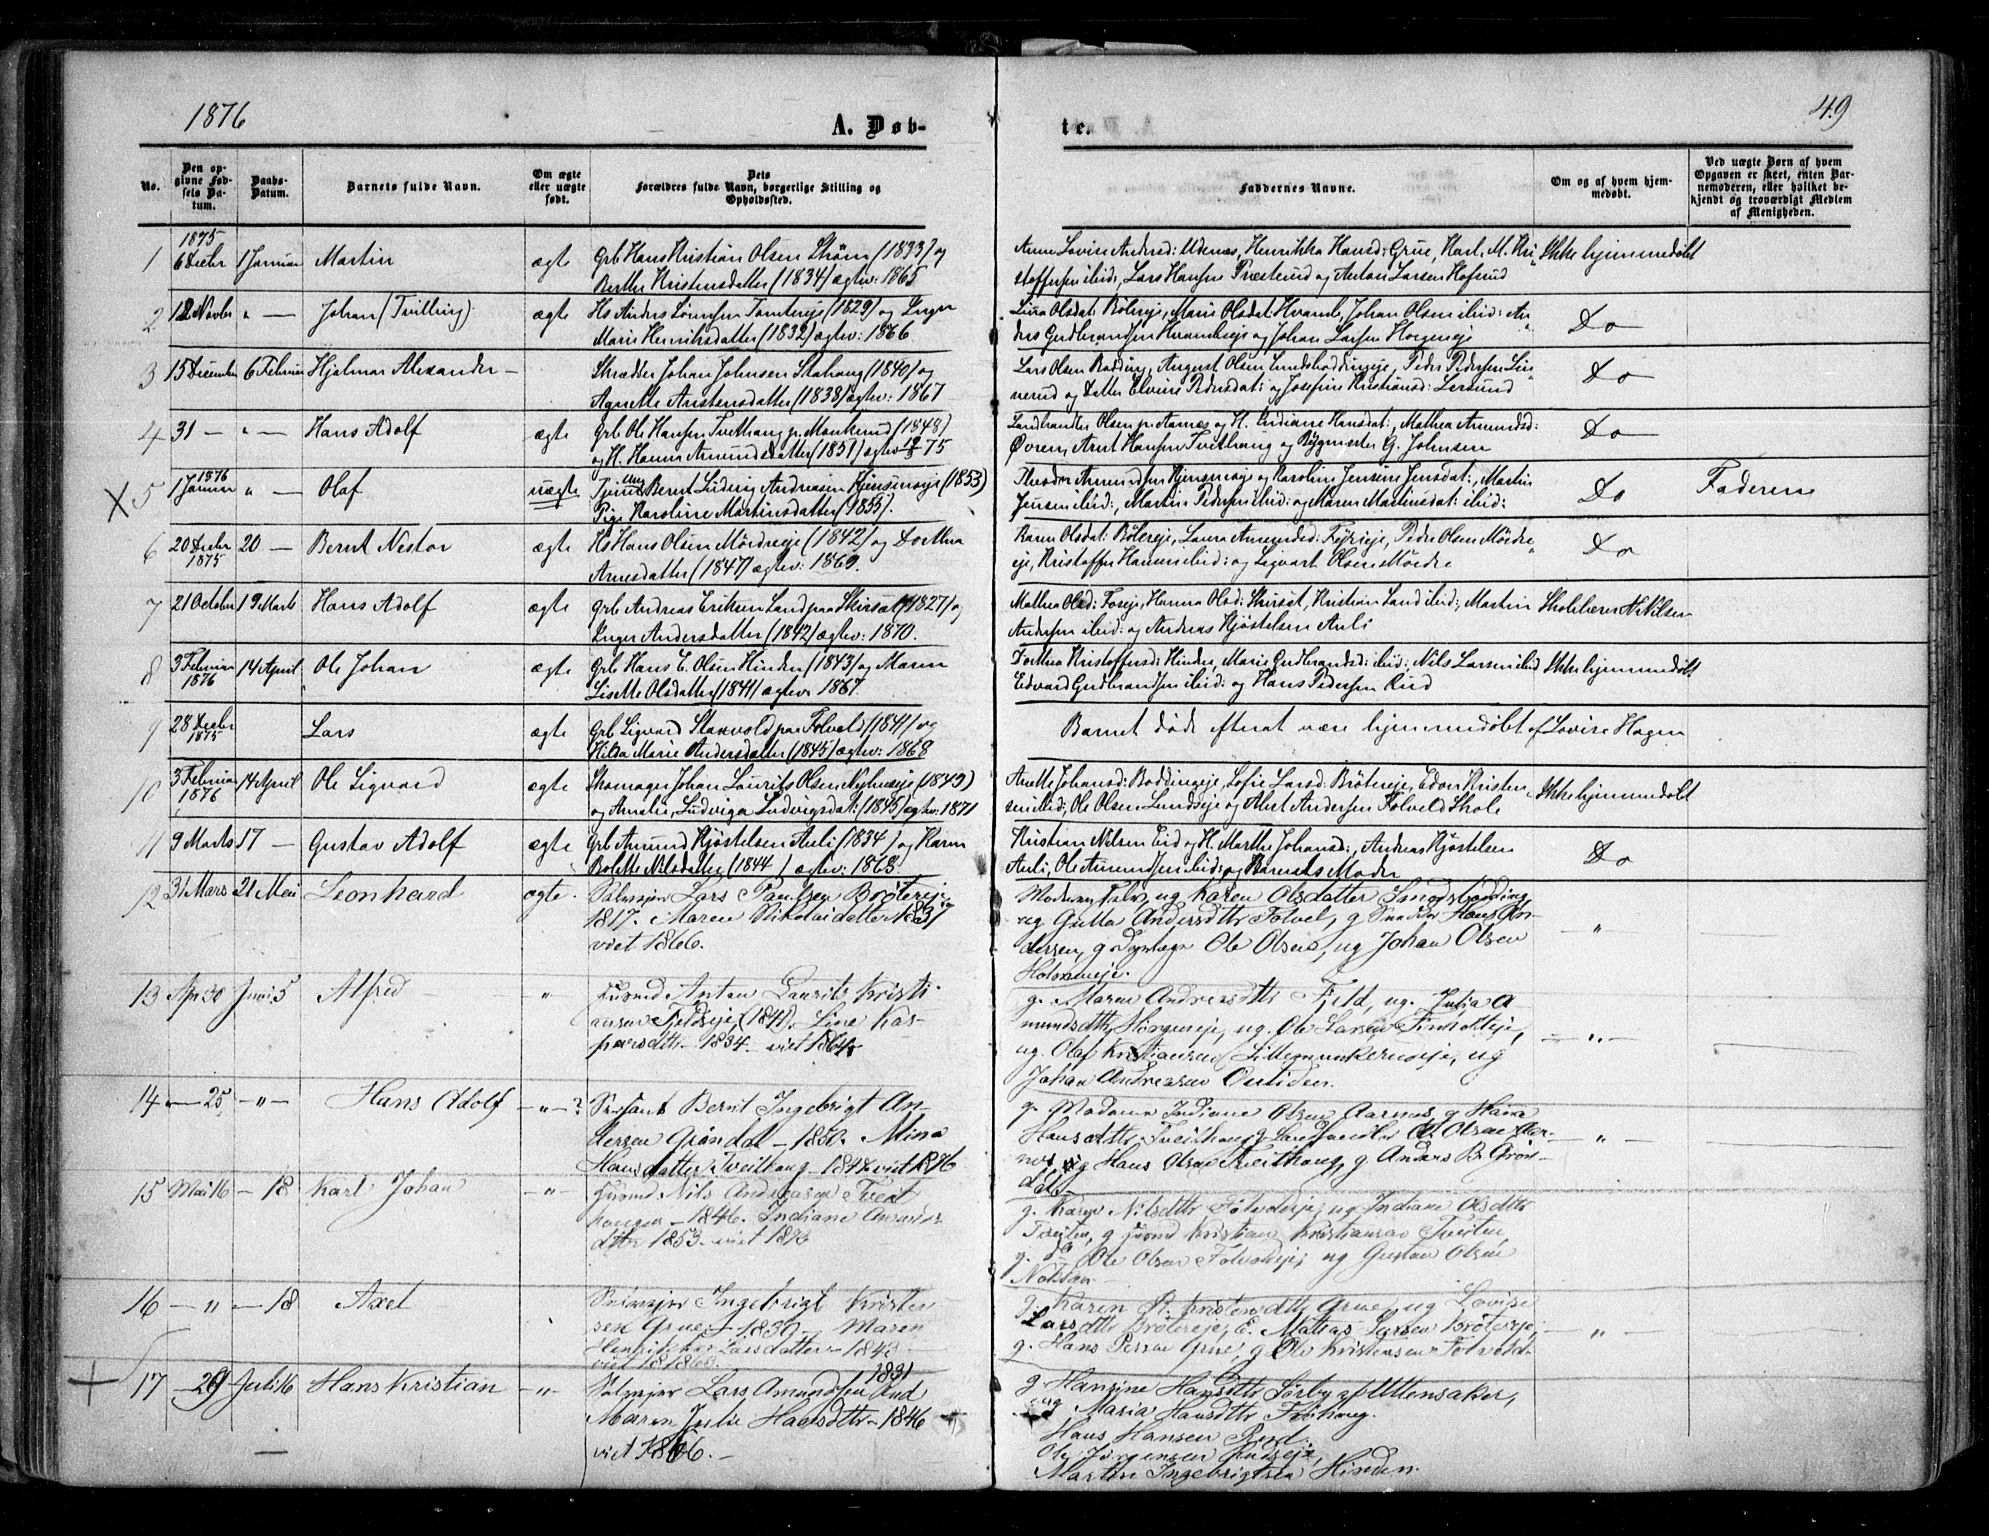 1876
A. Døb-
te.
49
No.
Den op-
givne Fød-
sels Da-
tum.
Daabs-
Datum.
Barnets fulde Navn.
Om ægte
eller uægte
født.
Dets
Forældres fulde Navn, borgerlige Stilling og
Opholdssted.
Faddernes Navne.
Om og af hvem hjem-
medøbt.
Ved uægte Børn af hvem
Opgaven er skeet, enten Bar-
nemoderen, eller hvilket be-
kjendt og troværdigt Medlem
af Menigheden.
1
1875
6 Decbr
1 Januar
Martin
ægte
Grb Hans Kristian Olsen Strøm (1833) og
Berthe Kristensdatter (1834) ægtev: 1865
Anne Lovise Andersd: Udenæs, Henrikka Hansd: Grue, Karl M. Kri
stoffersen ibid:, Lars Hansen Præsterud og Anton Larsen Hofsrud
Ikke hjemmedøbt
2
12 Novbr
" —
Johan (Tvilling)
ægte
Hs Anders Tømtereje (1829) og Inger
Marie Henriksdatter (1832) ægtev: 1866
Olsdat: Bølereje, Marie Olsdat: Johan Olsen ibid: An
dres Gudbrandsen og Johan Larsen
Do
3
15 December
6 Februar
Hjalmar Alexander —
Skrædder Johan Johnsen Stahaug (1840) og
Agnethe Aristensdatter (1838) ægtev: 1867
Lars Olsen Bodding, August Olsen Lundsboddingeje, Peder Pedersen Lin
nerud og Datter Elvine Pedersdat: og Josefine Kristiansd: Lersund
Do
4
31 —
" —
Hans Adolf
ægte
Grb Ole Hansen Tveithaug p. Munkerud (1848)
og H. Hanna Amundsdatter (1851) ægtev 75
Landhandler Olsen pr Aarnæs og H. Indiane Hansdat:, Mathea Amundsd:
Øvren, Arnt Hansen Tveithaug og Bygmester G. Johnsen
Do
5
1876
1 Januar
" —
Olaf
uægte
Ung
Tjener Bernt Ludvig Andreasen (1853)
Pige Karoline Martinsdatter (1855).
Theodor Amundsen og Karoline Jensine Jensdat:, Martin
Jensen ibid:, Martin Pedersen ibid: og Maren Martinsdat: ibid:
Do
Faderen
6
20 Decbr
1875
20 —
Bernt Nestor
ægte
Hs Hans Olsen Mördreeje (1842) og Dorthea
Arnesdatter (1847) ægtev: 1869.
Karen Olsdat: Bølereje, Laura Amundsd: Peder Olsen Mördre
eje, Kristoffer Hansen ibid: og Sigvart Olsen Mördre
Do
7
21 October
19 Marts
Hans Adolf
ægte
Grb Andreas Eriksen Sand paa Skirsæt (1827) og
Inger Andersdatter (1842) ægtev: 1870.
Mathea Olsd: Hanna Olsd: Skirsæt, Kristian Sand ibid:, Martin
Andersen ibid: og Andreas Kjøstelsen Auli
Skolelærer N Nilsen
8
3 Februar
1876
14 April
Ole Johan
ægte
Grb Hans C. Olsen Hinden (1843) og Maren
Lisette Olsdatter (1841) ægtev: 1867.
Dorthea Kristoffersd: Hinden, Marie Gudbrandsd: ibid:, Nils Larsen ibid
Edvard Gudbrandsen ibid: og Hans Pedersen Rud
Ikke hjemmedøbt
9
28 Decbr
1875
Lars
ægte
Grb Sigvard Stanvold paa Folvald (1841) og
Hilda Marie Andersdatter (1845) ægtev: 1868
Barnet döde efterat være hjemmedøbt af Lovise Hagen
10
3 Februar
1876
14 April
Ole Sigvard
ægte
Skomager Johan Laurits Olsen (1843)
og Amalie Ludviga Ludvigsdat: (1845) ægtev: 1871
Anette Johansd: Boddingeje, Sofie Larsd: Brötereje, Edvor Kristen
sen ibid:, Ole Olsen Lundseje og Albert Andersen Folveld Skole
Ikke hjemmedøbt
11
9 Marts
17 —
Gustav Adolf
ægte
Grb Amund Kjøstelsen Auli (1834) og Karen
Bolette Nilsdatter (1844) ægtev: 1863.
Kristian Nilsen Eid og H. Marthe Johansd:, Andreas Kjøstelsen
Auli, Ole Amundsen ibid: og Barnets Moder
Do
12
31 Mars
21 Mai
Leonhard
ægte.
Selvejer Lars Paulsen Bröterejе
1817. Maren Nikolaidatter 1837
viet 1866.
Moderen selv, ug Karen Olsdatter
ug Gutta Andersdtr Folvel, g Snedker Hans An-
dersen, g Ole Olsen, ug Johan Olsen
Holoneneje.
"
13
Apr 30
Juni 5
Alfred
"
Husmd Anton Laurits Kristi-
ansen Fjeldseje, (1841) Line Kas-
persdtr. 1834. viet 1864
g. Maren Andreasdtr Fjeld, ug. Julia A
mundsdtr, Horgeneje, ug. Ole Larsen
ug. Olaf Kristiansen Lillemunkerudeje, ug
Johan Andresen
— " —
14
— 25
— " —
Hans Adolf
— " — ?
Sersjant Bernt Ingebrigt An-
dersen Gröndal — 1850. Mina
Hansdatter Tveithaug — 1847 viet 1876
g. Madame Indiane Olsen Aarnes, g Karen
Hansdtr Tveithaug, g Landhandler O. Olsen Aar-
nes og Hans Olsen Tveithaug, g Anders B. Grön-
dal
— " —
15
Mai 16
— 18
Karl Johan
— " —
Husmd Nils Andersen Tveit
haugen — 1846. Indiane Amunds
dtr 1853. viet 1876
g. Karen Nilsdtr ug Indiane Olsdtr
Tveiten, g Husmd Kristian Kristiansen Tveiten
g. Ole Olsen Folvoldeje, ug Gustav Olsen
16
— " —
— 18
Axel
Selvejer Ingebrigt Kristen
sen Grue — 1830. Maren
Henrikka Larsdatter — 1843
g. Karen A. Kristensdtr Grue, ug Lovise
Larsdtr Brötereje, E. Matias Larsen Bröterejе,
g. Hans Grue, g Ole Kristensen Folvold.
— " —
17
— 29
Juli 16
Hans Kristian
— " —
1831
Selvejer Lars Amundsen Rud
Maren Julie Hansdtr — 1846
viet 1866. —
g. Hansine Hansdtr Sörby af Ullensaker,
ug Maria Hansdtr Fröhaug.
Hans Hansen Rud.
Ole Jörgensen Rudseje,
Martin Ingebrigtsen Hinden.